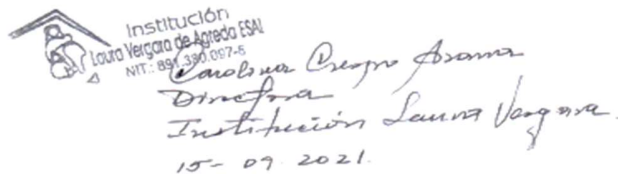 Institución
Laura Vergara de Agreda ESAL
NIT.: 891.380.097-5
Carolina Crespo Arana
Directora
Institución Laura Vergara.
15- 09. 2021.